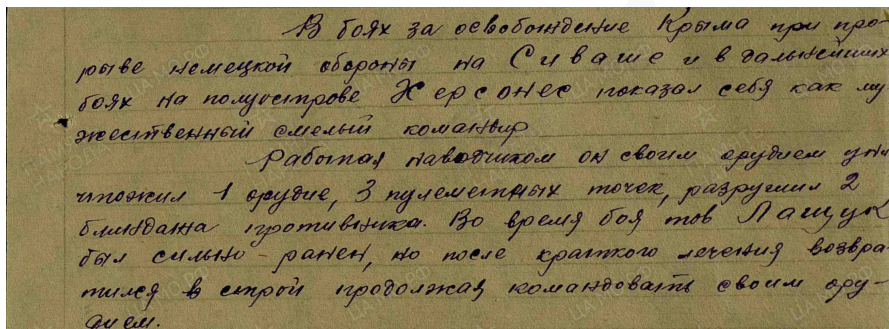 В боях за освобождение Крыма при про-
рыве немецкой обороны на Сиваше и в дальнейших
боях на полуострове Херсонес показал себя как му
жественный смелый командир
Работая наводчиком он своим орудием уни
чтожил 1 орудие, 3 пулеметных точек, разрушил 2
блиндажа противника. Во время боя тов Лащук
был сильно-ранен, но после краткого лечения возвра-
тился в строй продолжая командовать своим ору-
дием.